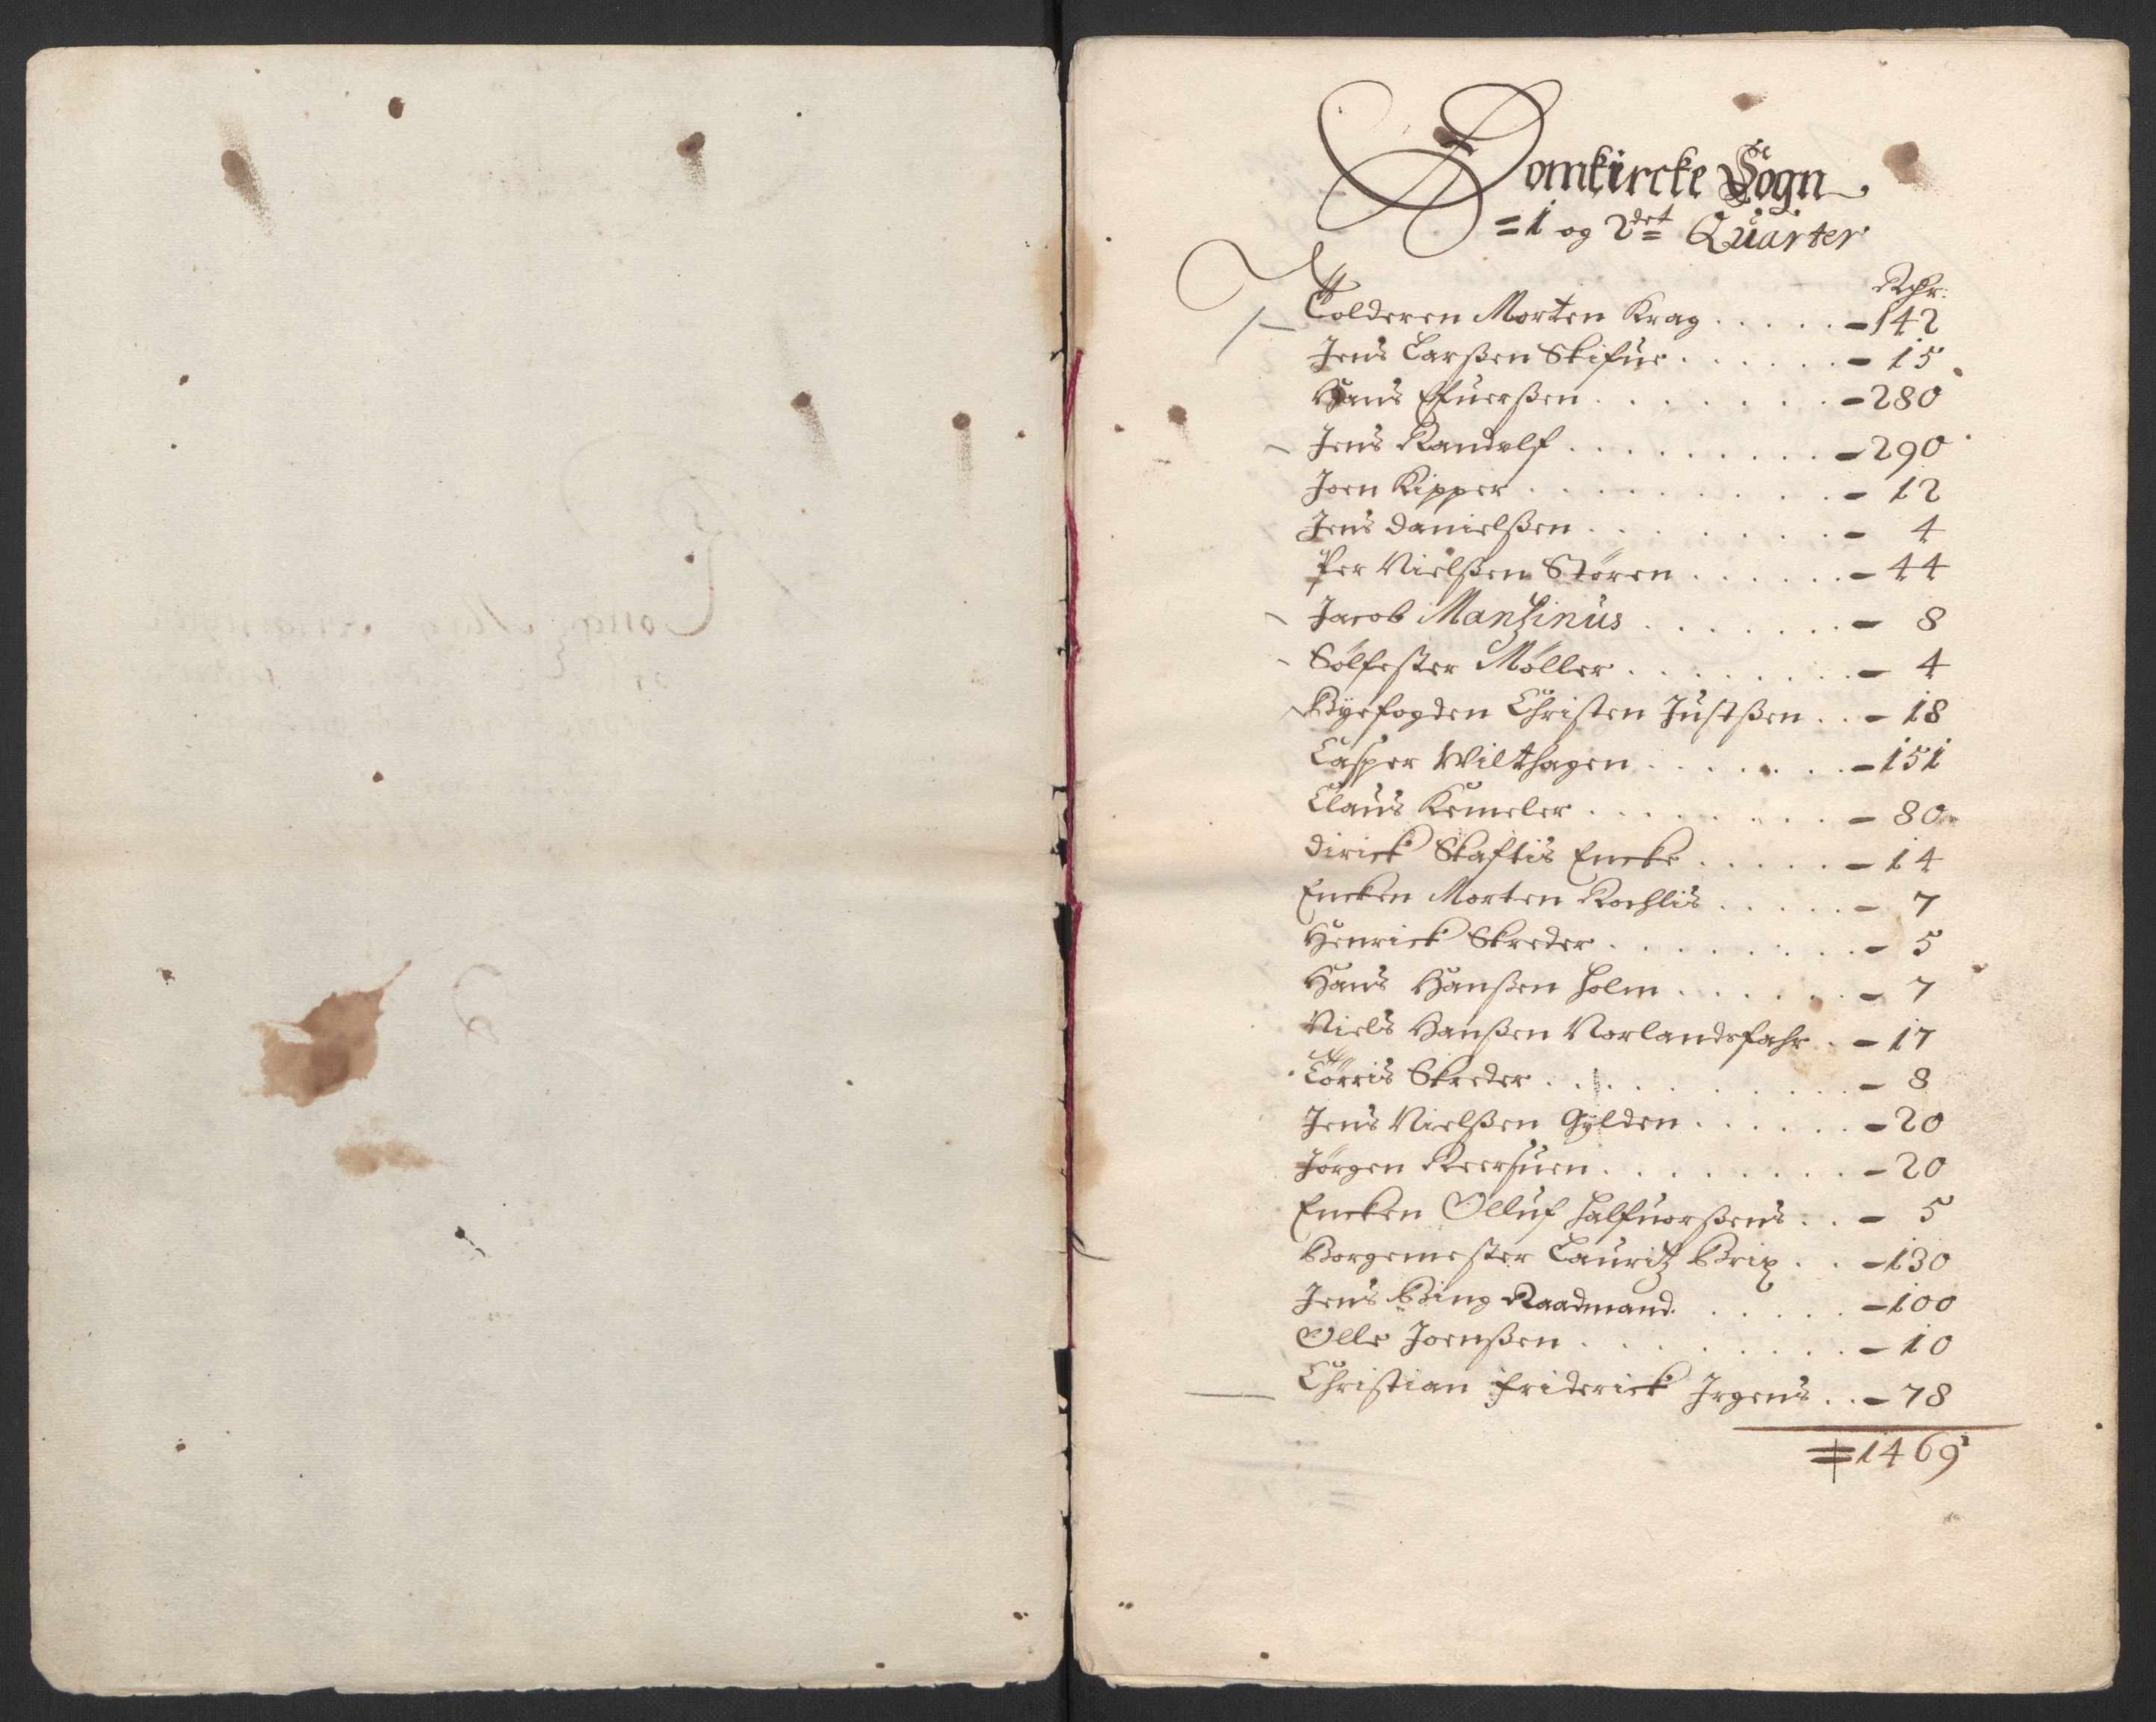 Domkircke Sogn
= 1 og 2det Quarter
Rdr:
Tolderen Morten Krag . . . . . - 142
Jens Larßen Skifue . . . . . . - 15
Hans Efuerßen . . . . . . . . - 280
Jens Randulf . . . . . . . . . - 290
Joen Kipper . . . . . . . . . - 12
Jens Danielßen . . . . . . . . - 4
Per Nielßen Støren . . . . . . - 44
Jacob Mantzinus . . . . . . . - 8
Sølfester Møller . . . . . . . . - 4
Byefogden Christen Justßen . . - 18
Casper Wilthagen . . . . . . . - 151
Claus Kemeler . . . . . . . . - 80
Dirick Skaftis Encke . . . . . - 14
Encken Morten Kochlis . . . . . - 7
Henrick Skreder . . . . . . . . - 5
Hans Hanßen Holm . . . . . . - 7
Niels Hanßen Norlandsfahr . - 17
Tørris Skreder . . . . . . . . . - 8
Jens Nielßen Gylden . . . . . . - 20
Jørgen Reersuen . . . . . . . . - 20
Encken Olluf Halfuorßens . . - 5
Borgemester Lauritz Brix . . - 130
Jens Bing Raadmand . . . . . - 100
Olle Joenßen . . . . . . . . . - 10
Christian Friderick Jrgens . . - 78
= 1469